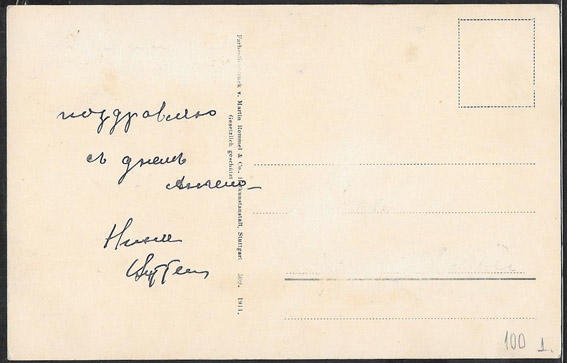 поздравляю
съ днемъ
Ангела
Нина
Farbenlichtdruck v. Martin Rommel & Co., Hofkunstanstalt, Stuttgart 1911.
Gesetzlich geschützt
100